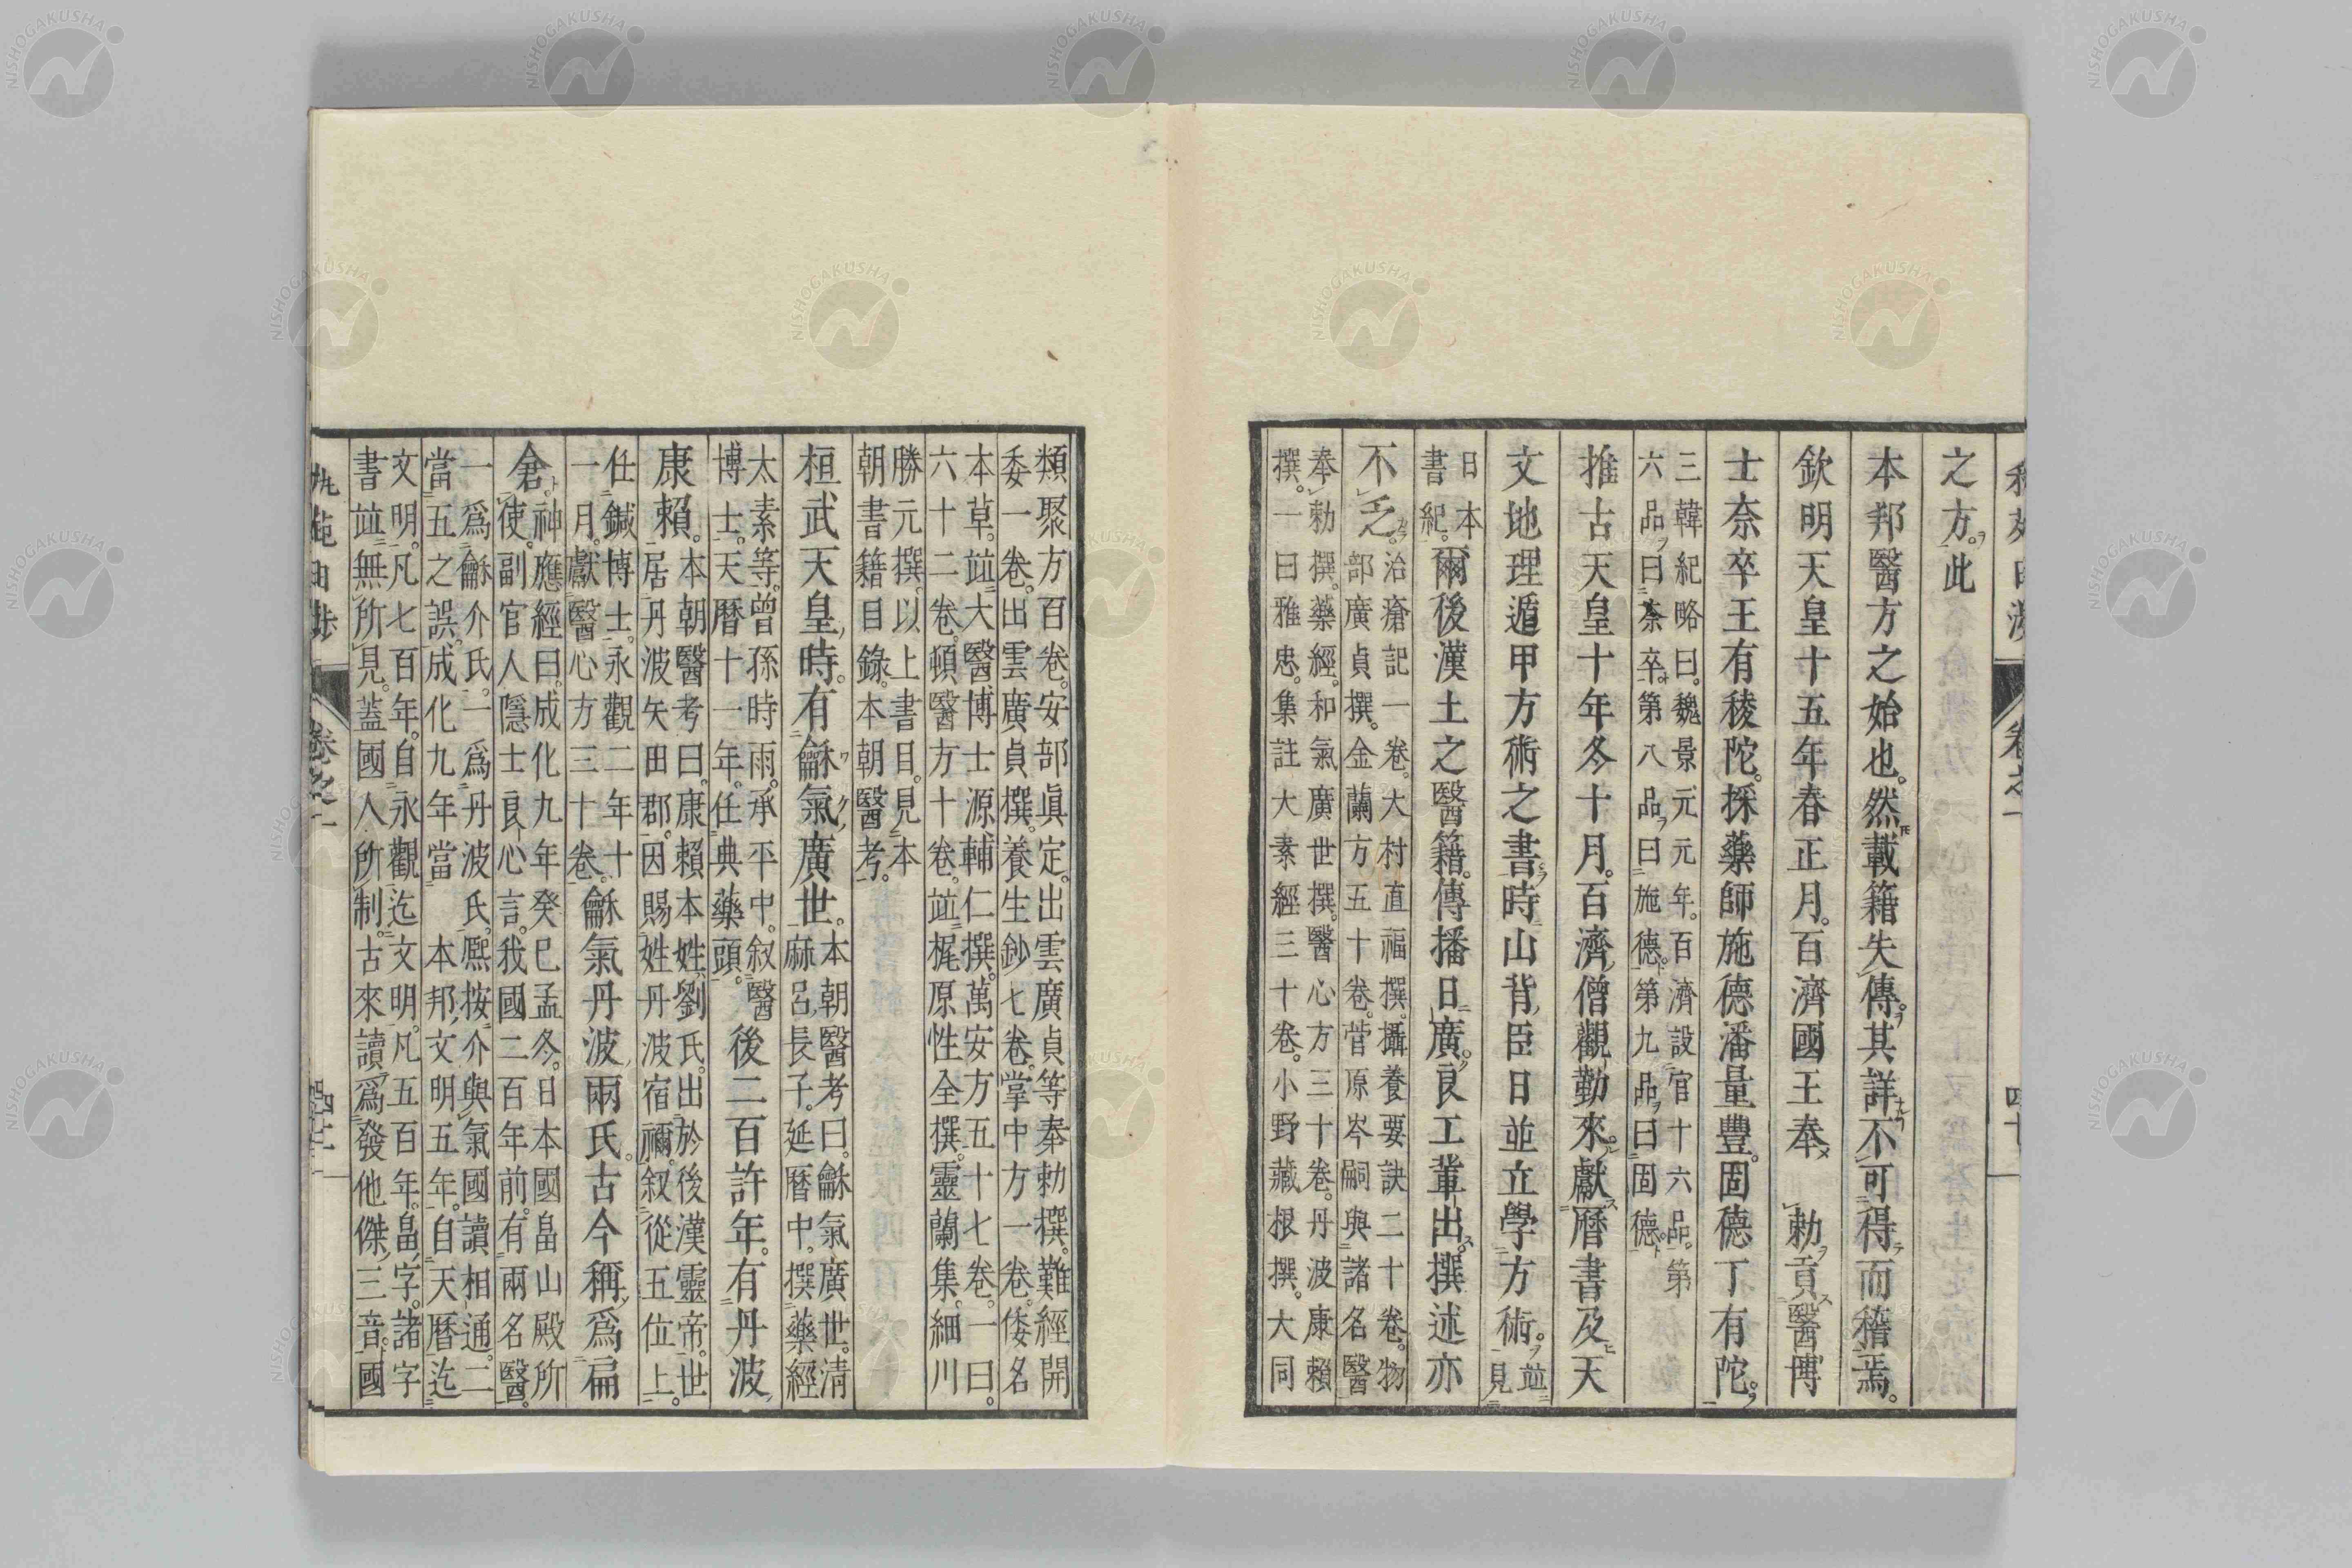 之方。此
本邦醫方之始也。然載籍失傳。其詳不可得而稽焉。
欽明天皇十五年春正月。百濟國王奉 勅貢醫博
士奈卒王有㥄陀。採藥師施德潘量豊。固德丁有陀。
三韓紀略曰。魏景元元年。百濟設官十六品。第
六品曰奈卒。第八品曰施德。第九品曰固德
推古天皇十年冬十月。百濟僧觀勤來。獻曆書及天
文地理遁甲方術之書。時山背臣日並立學方術。並見
日本
書紀。爾後漢土之醫籍。傳播日廣。良工輩出。撰述亦
不乏。
治瘡記一卷。大村直福撰。攝養要訣二十卷。物
部廣貞撰。金蘭方五十卷。菅原岑嗣與諸名醫
奉勅撰。藥經。和氣廣世撰。醫心方三十卷。丹波康賴
撰。一曰雅忠。集註大素經三十卷。小野藏根撰。大同
類聚方百卷。安部眞定。出雲廣貞等奉勅撰。難經開
委一卷。出雲廣貞撰。養生鈔七卷。掌中方一卷。倭名
本草。竝大醫博士源輔仁撰。萬安方五十七卷。一曰。
六十二卷。頓醫方十卷。竝梶原性全撰。靈蘭集。細川
勝元撰。以上書目。見本
朝書籍目錄。本朝醫考。
桓武天皇時。有龢氣廣世。
本朝醫考曰。龢氣廣世。淸
麻呂長子。延曆中。撰藥經
太素等。曾孫時雨。承平中。叙醫
博士。天曆十一年。任典藥頭。
後二百許年。有丹波
康賴。
本朝醫考曰。康賴本姓劉氏。出於後漢靈帝。世
居丹波矢田郡。因賜姓丹波宿禰。叙從五位上。
任鍼博士。永觀二年十
一月。獻醫心方三十卷。
龢氣丹波兩氏。古今稱爲扁
倉。
神應經曰。成化九年癸巳孟冬。日本國畠山殿所
使。副官人隱士良心言。我國二百年前。有兩名醫。
一爲龢介氏。一爲丹波氏。熙按。介與氣國讀相通。二
當五之誤。成化九年。當 本邦文明五年。自天曆迄
文明。凡七百年。自永觀迄文明。凡五百年。畠字。諸字
書竝無所見。蓋國人所制。古來讀爲發他傑三音。國